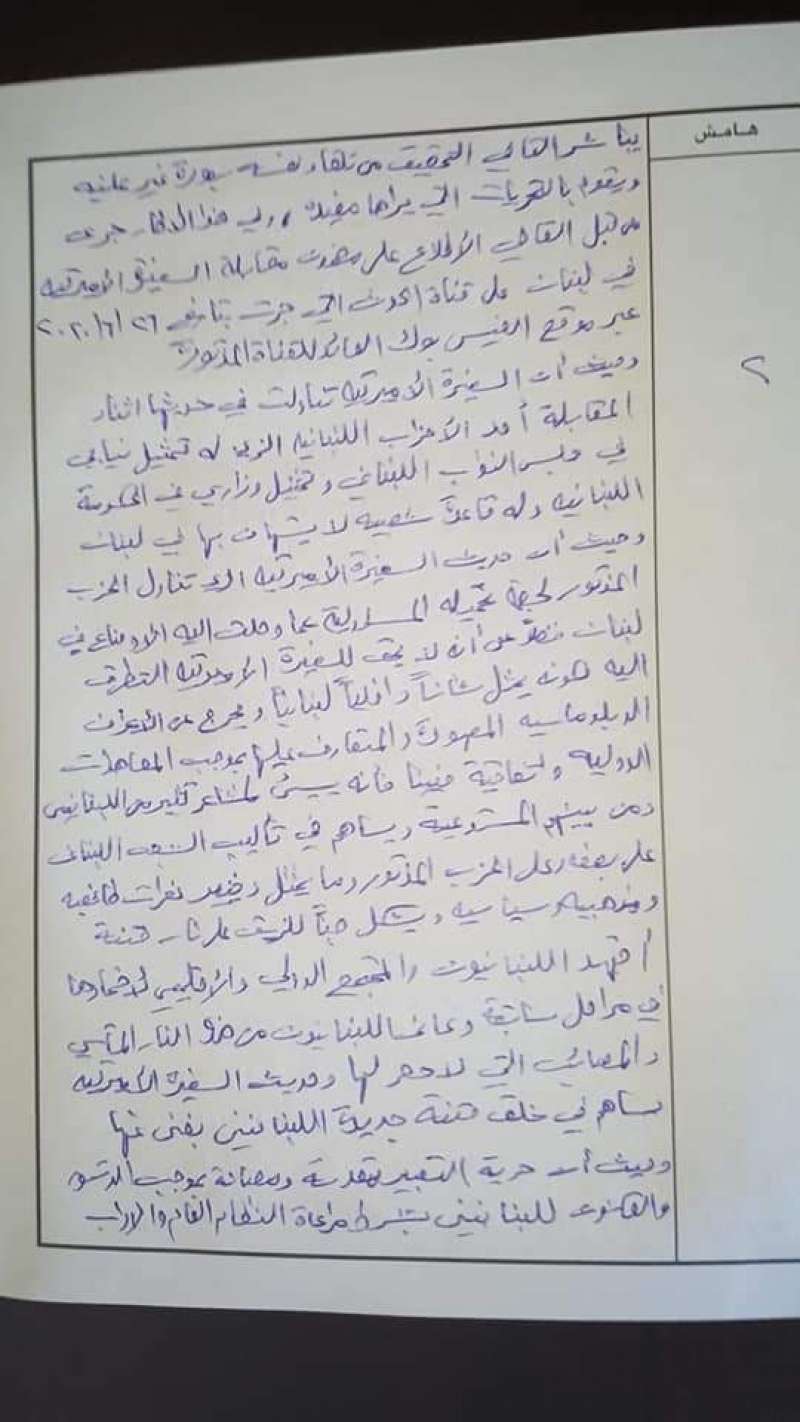 هامش
٢
يباشر القاضي التحقيق من تلقاء نفسه بصورة غير علنية
ويقوم بالتحريات التي يراها مفيدة، وفي هذا الإطار جرى
من قبل القاضي الاطلاع على مقابلة السفيرة الاميركية
في لبنان على قناة الحدث التي جرت بتاريخ ٢٦/٦/٢٠٢٠
عبر موقع الفيس بوك العائد للقناة المذكورة
وحيث أن السفيرة الاميركية تناولت في حديثها اثناء
المقابلة أحد الأحزاب اللبنانية الذي له تمثيل نيابي
في مجلس النواب اللبناني وتمثيل وزاري في الحكومة
اللبنانية وله قاعدة شعبية لا يستهان بها في لبنان
وحيث أن حديث السفيرة الاميركية الذي تناول الحزب
المذكور لجهة تحميله المسؤولية عما وصلت اليه الاوضاع في
لبنان فضلاً عن أن لا يحق للسفيرة الاميركية التطرق
اليه كونه يمثل شأناً داخلياً لبنانياً ويخرج عن الأعراف
الدبلوماسية والمتعارف عليها بموجب المعاهدات
الدولية واتفاقية فيينا فأنه يسيئ لمشاعر كثير من اللبنانيين
ومن بينهم ويساهم في تأليب الشعب اللبناني
على بعضه وعلى الحزب المذكور وما يمثل نعرات طائفية
ومذهبية وسياسية ويشكل صباً للزيت على نار فتنة
اللبنانيون والمجتمع الدولي والإقليمي لاخمادها
في مراحل سابقة وعانى اللبنانيون من هذه النار المآسي
والمصائب التي لا حصر لها وحديث السفيرة الاميركية
يساهم في خلق فتنة جديدة اللبنانيين بغنى عنها
وحيث أن حرية التعبير مقدسة ومصانة بموجب الدستور
والقانون للبنانيين بشرط مراعاة النظام العام والآداب